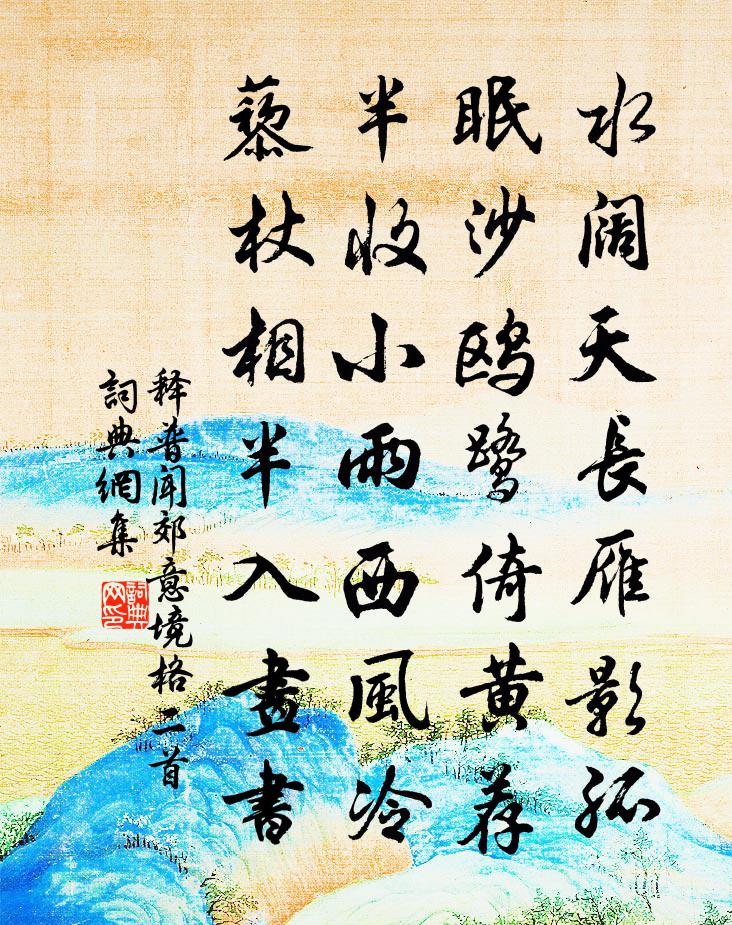 水阔天長雁影孤
眠沙鸥鹭倚黃荐
半收小雨西風冷
藜杖相半入畫書
释普闻郊意境格二首
詞典網集
詞典
网印